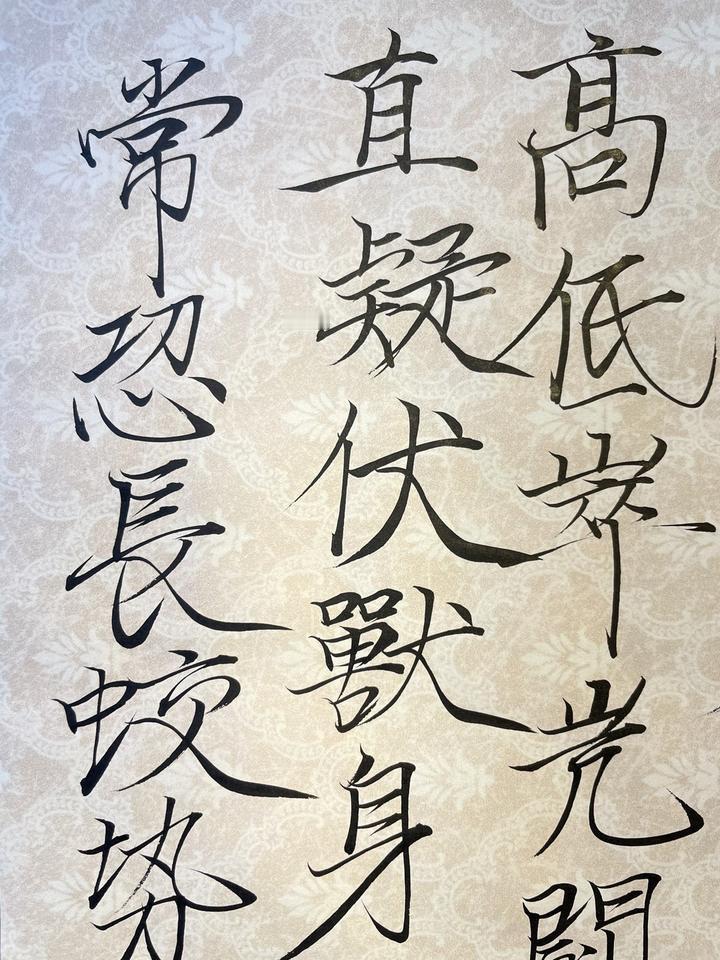 高低崒
直疑伏獸身
常恐長蛟勢